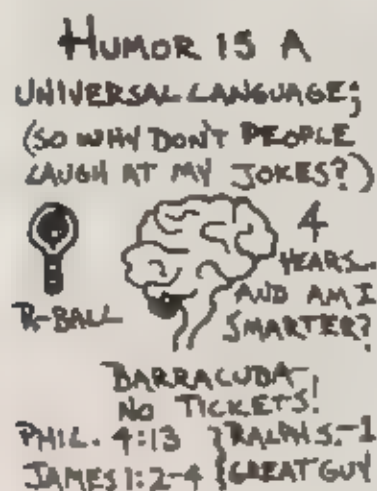 HUMOR IS A
UNIVERSAL LANGUAGE;
(SO WHY DON'T PEOPLE
LAUGH AT MY JOKES?)
4
YEARS...
AND AM I
SMARTER?
R-BALL
BARRACUDA,
NO TICKETS!
PHIL. 4:13 } RALPH S.-1
JAMES 1:2-4 { GREAT GUY